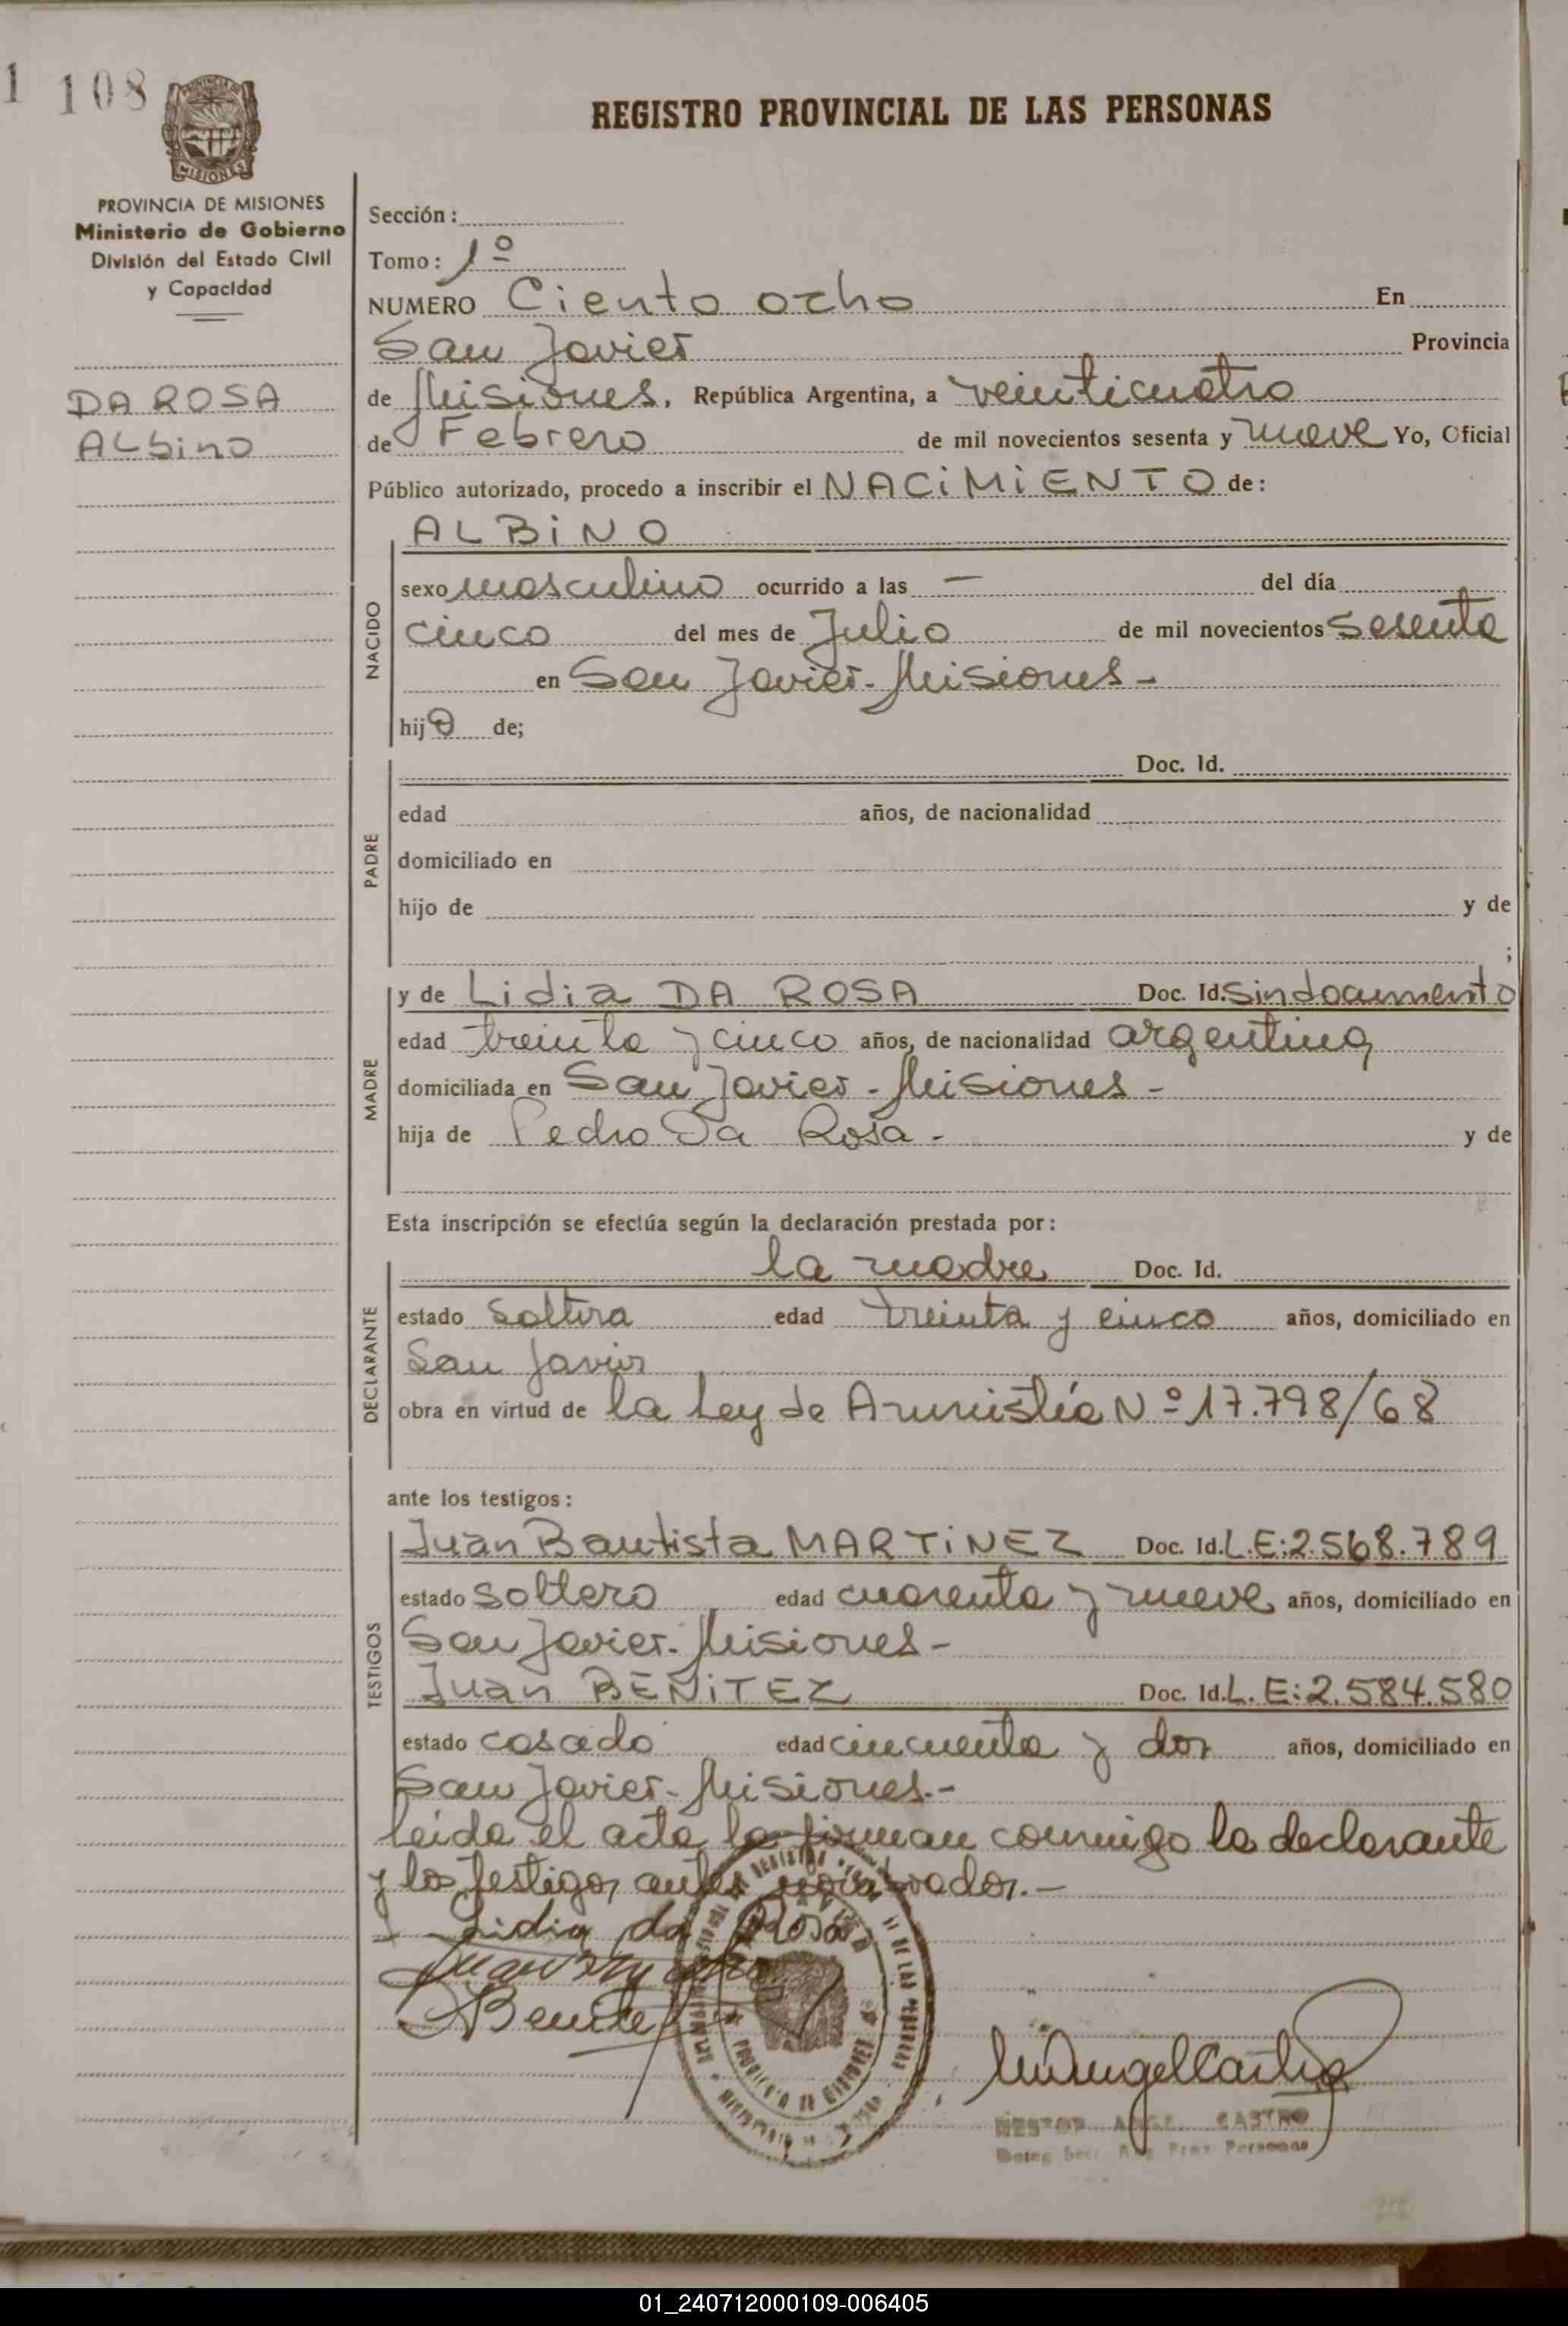 1 108
REGISTRO PROVINCIAL DE LAS PERSONAS
MISIONES
PROVINCIA DE MISIONES
Ministerio de Gobierno
División del Estado Civil
y Capacidad
DA ROSA
ALbino
Sección:
Tomo: 1º
NUMERO Ciento ocho En
San Javier Provincia
de Misiones, República Argentina, a veinticuatro
de Febrero de mil novecientos sesenta y nueve Yo, Oficial
Público autorizado, procedo a inscribir el NACiMiENTO de:
ALBiNO
NACIDO
sexo masculino ocurrido a las — del día
cinco del mes de Julio de mil novecientos sesenta
en San Javier-Misiones-
hijo de;
PADRE
Doc. Id.
edad años, de nacionalidad
domiciliado en
hijo de y de
;
MADRE
y de Lidia DA ROSA Doc. Id. Sin documento
edad treinta y cinco años, de nacionalidad argentina
domiciliada en San Javier-Misiones-
hija de Pedro Da Rosa- y de
Esta inscripción se efectúa según la declaración prestada por:
DECLARANTE
la madre Doc. Id.
estado soltera edad treinta y cinco años, domiciliado en
San Javier
obra en virtud de la Ley de Amnistía Nº 17.798/68
ante los testigos:
TESTIGOS
Juan Bautista MARTiNEZ Doc. Id. L.E:2.568.789
estado soltero edad cuarenta y nueve años, domiciliado en
San Javier-Misiones-
Juan BENiTEZ Doc. Id. L.E:2.584.580
estado casado edad cincuenta y dos años, domiciliado en
San Javier-Misiones.-
leída el acta la firman conmigo la declarante
y los testigos antes nombrados.-
Lidia da Rosa
Benitez
NESTOR ANGEL CASTRO
01_240712000109-006405